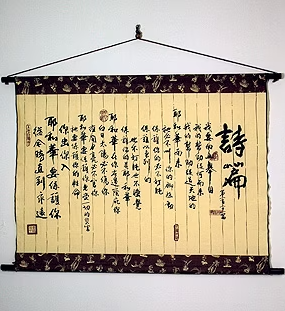 詩篇
我要向山舉目
我的幫助從何而來
我的幫助從造天地的
耶和華而來
他必不叫你的腳搖動
保護你的必不打盹
保護以色列的
也不打盹也不睡覺
保護你的是耶和華
耶和華在你右邊蔭庇你
白日太陽必不傷你
夜間月亮必不害你
耶和華要保護你免受一切的災害
他要保護你的性命
你出你入
耶和華要保護你
從今時直到永遠